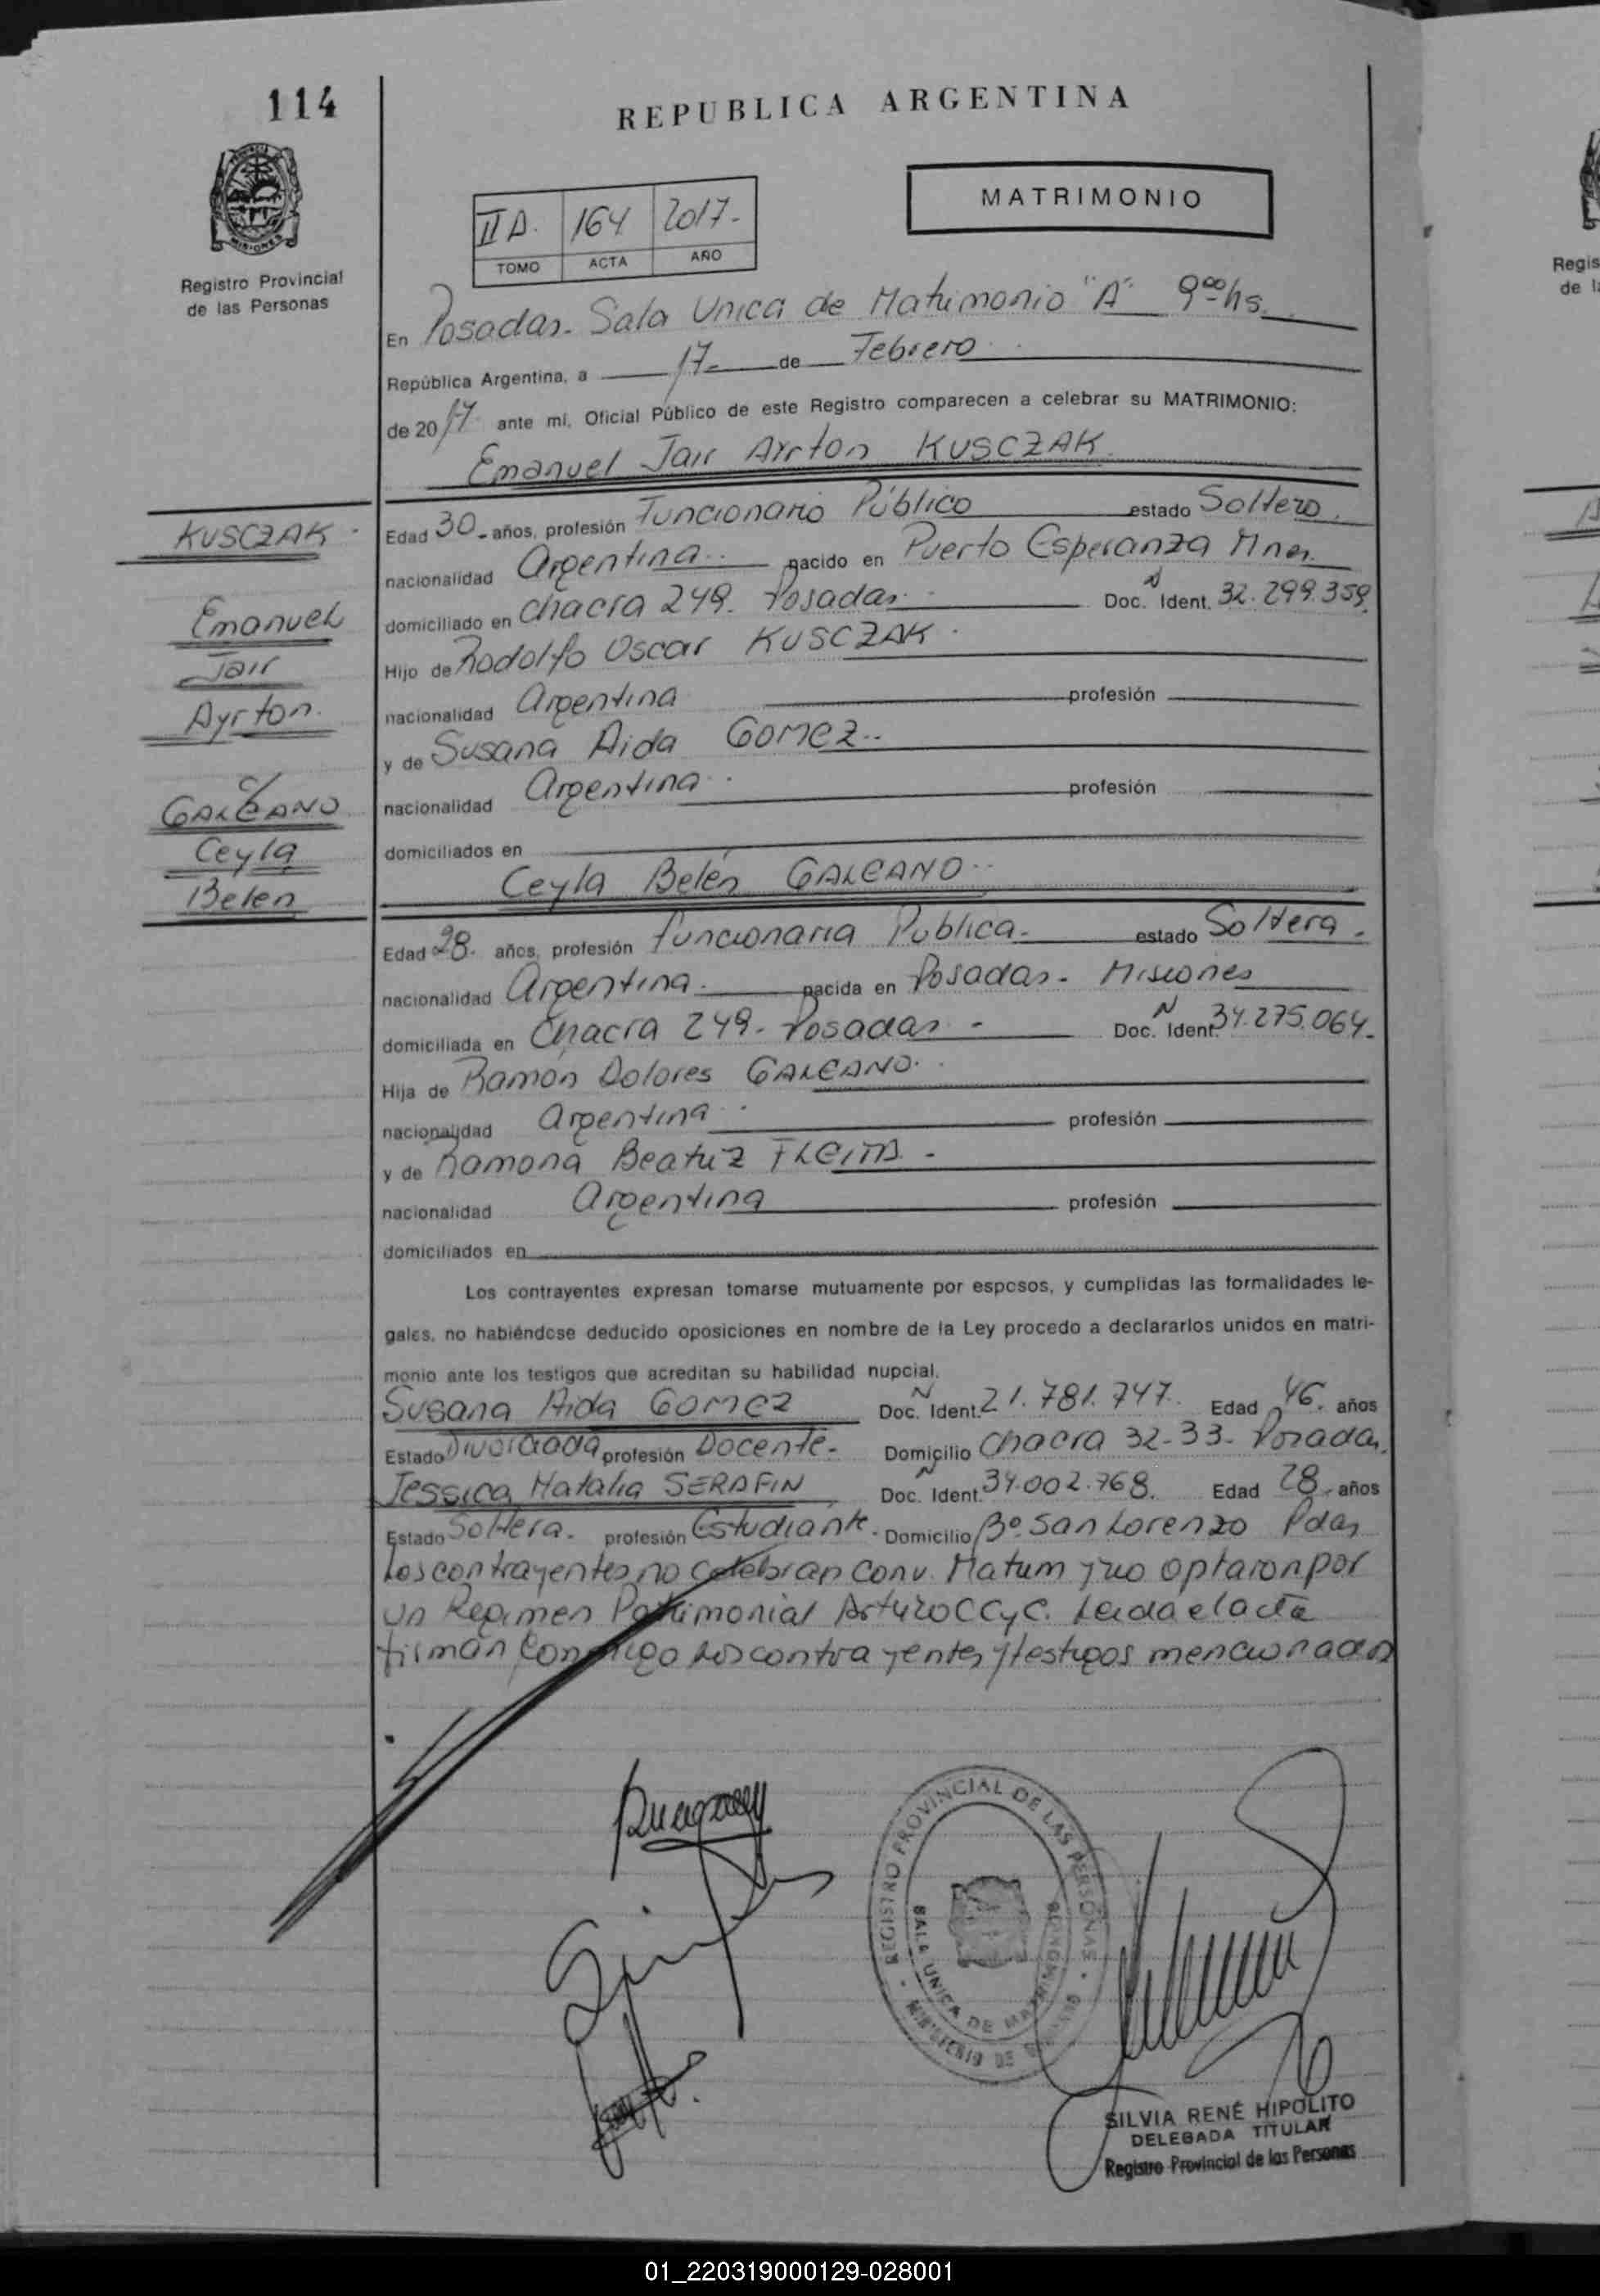 114
REPUBLICA ARGENTINA
MATRIMONIO
II A. 164 2017-
TOMO ACTA AÑO
Registro Provincial
de las Personas
En Posadas- Sala Unica de Matrimonio "A" 9 00 hs.
República Argentina, a 17- de Febrero
de 2017 ante mí, Oficial Público de este Registro comparecen a celebrar su MATRIMONIO:
Emanuel Jair Ayrton KUSCZAK
KUSCZAK
Emanuel
Jair
Ayrton
c/
GALEANO
Ceyla
Belen
Edad 30- años, profesión Funcionario Público estado Soltero
nacionalidad Argentina nacido en Puerto Esperanza Mnes.
domiciliado en Chacra 249. Posadas Doc. N Ident. 32.299.359
Hijo de Rodolfo Oscar KUSCZAK
nacionalidad Argentina profesión
y de Susana Aida GOMEZ
nacionalidad Argentina profesión
domiciliados en
Ceyla Belén GALEANO
Edad 28. años, profesión funcionaria Publica- estado Soltera.
nacionalidad Argentina. nacida en Posadas- Misiones
domiciliada en Chacra 249- Posadas - Doc. N Ident. 34.275.064-
Hija de Ramon Dolores GALEANO
nacionalidad Argentina profesión
y de Ramona Beatriz FLEITA -
nacionalidad Argentina profesión
domiciliados en
Los contrayentes expresan tomarse mutuamente por esposos, y cumplidas las formalidades le-
gales, no habiéndose deducido oposiciones en nombre de la Ley procedo a declararlos unidos en matri-
monio ante los testigos que acreditan su habilidad nupcial.
Susana Aida GOMEZ Doc. N Ident. 21.781.747. Edad 46. años
Estado Divorciada profesión Docente- Domicilio Chacra 32-33- Posadas.
Jessica Natalia SERAFIN Doc. N Ident. 34.002.768. Edad 28 años
Estado Soltera. profesión Estudiante. Domicilio Bº San Lorenzo Pdas
Los contrayentes no celebran conv. Matrim y no optaron por
un Regimen Patrimonial CCyC. Leida el acta
firman conmigo los contrayentes y testigos mencionados
REGISTRO PROVINCIAL DE LAS PERSONAS
SALA UNICA DE MATRIMONIOS
MINISTERIO DE GOBIERNO
SILVIA RENÉ HIPOLITO
DELEGADA TITULAR
Registro Provincial de las Personas
01_220319000129-028001